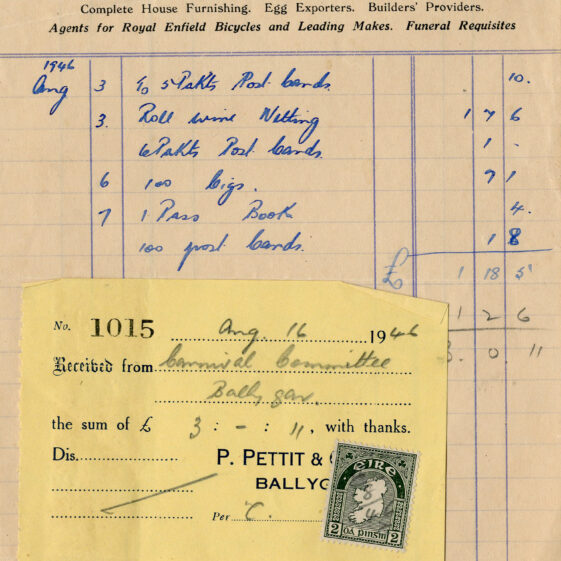 Complete House Furnishing. Egg Exporters. Builders' Providers.
Agents for Royal Enfield Bicycles and Leading Makes. Funeral Requisites
1946
Aug 3 To 5 Pakts Post Cards. 10.
3. Roll wire Netting 1 7 6
6 Pakts Post Cards. 1 -
6 100 Cigs. 7 1
7 1 Pass Book 4.
100 post Cards. 1 8
£ 1 18 5
1 2 6
3. 0. 11
No. 1015 Aug. 16 1946
Received from Carnival Committee
Ballygar.
the sum of £ 3 : - : 11, with thanks.
Dis.
P. PETTIT &
BALLYG
Per C.
EIRE
2 2
DÁ PINSIN